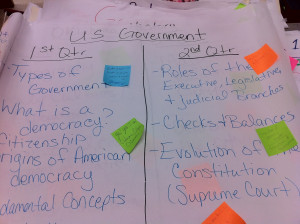 US Government
1st Qtr
Types of
Government
What is a
democracy?
Citizenship
Origins of American
democracy
Fundamental Concepts
2nd Qtr
- Roles of the
Executive, Legislative
+ Judicial Branches
- Checks + Balances
- Evolution of the
Constitution
(Supreme Court)